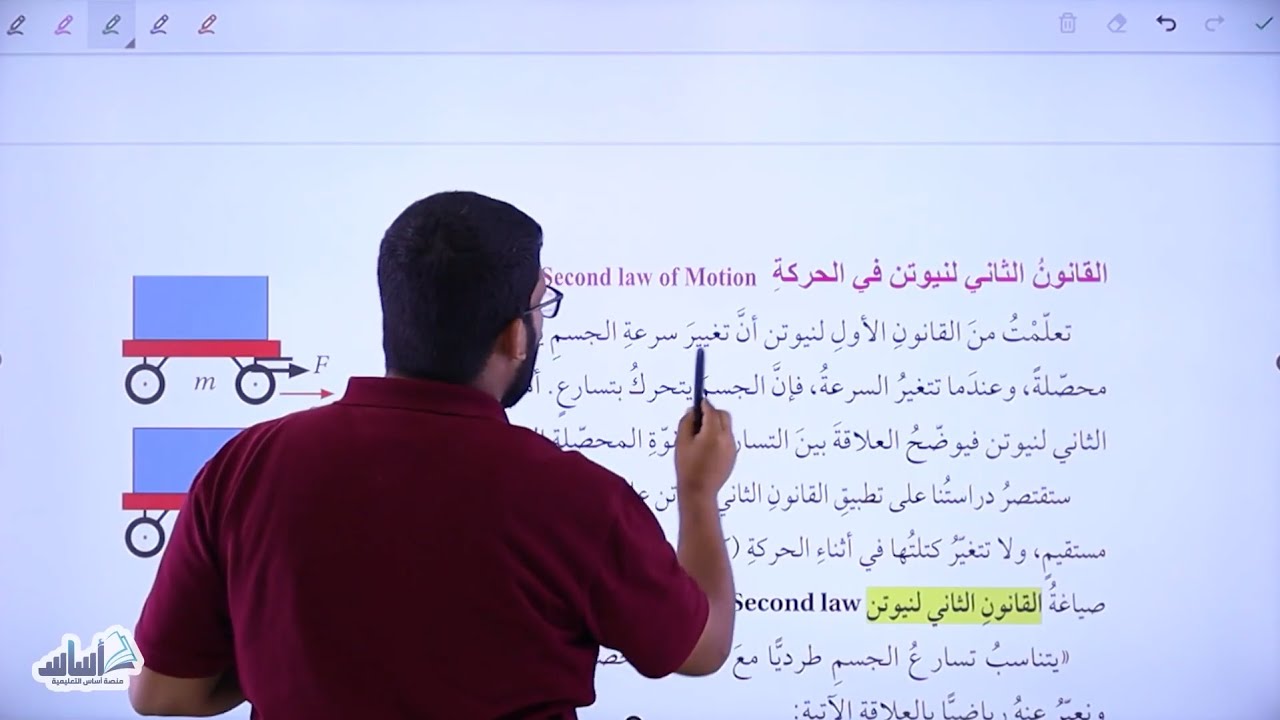 القانونُ الثاني لنيوتن في الحركةِ Second law of Motion
تعلّمْتُ منَ القانونِ الأولِ لنيوتن أنَّ تغييرَ سرعةِ الجسمِ
محصّلةً، وعندَما تتغيرُ السرعةُ، فإنَّ الجسمَ يتحركُ بتسارعٍ.
الثاني لنيوتن فيوضّحُ العلاقةَ بينَ المحصّلةِ
ستقتصرُ دراستُنا على تطبيقِ القانونِ الثاني
مستقيمٍ، ولا تتغيّرُ كتلتُها في أثناءِ الحركةِ
صياغةُ القانونِ الثاني لنيوتن Second law
«يتناسبُ تسارعُ الجسمِ طرديًّا معَ
ونعبّرُ عنهُ رياضيًّا بالعلاقةِ الآتيةِ:
F
m
أساس
منصة أساس التعليمية